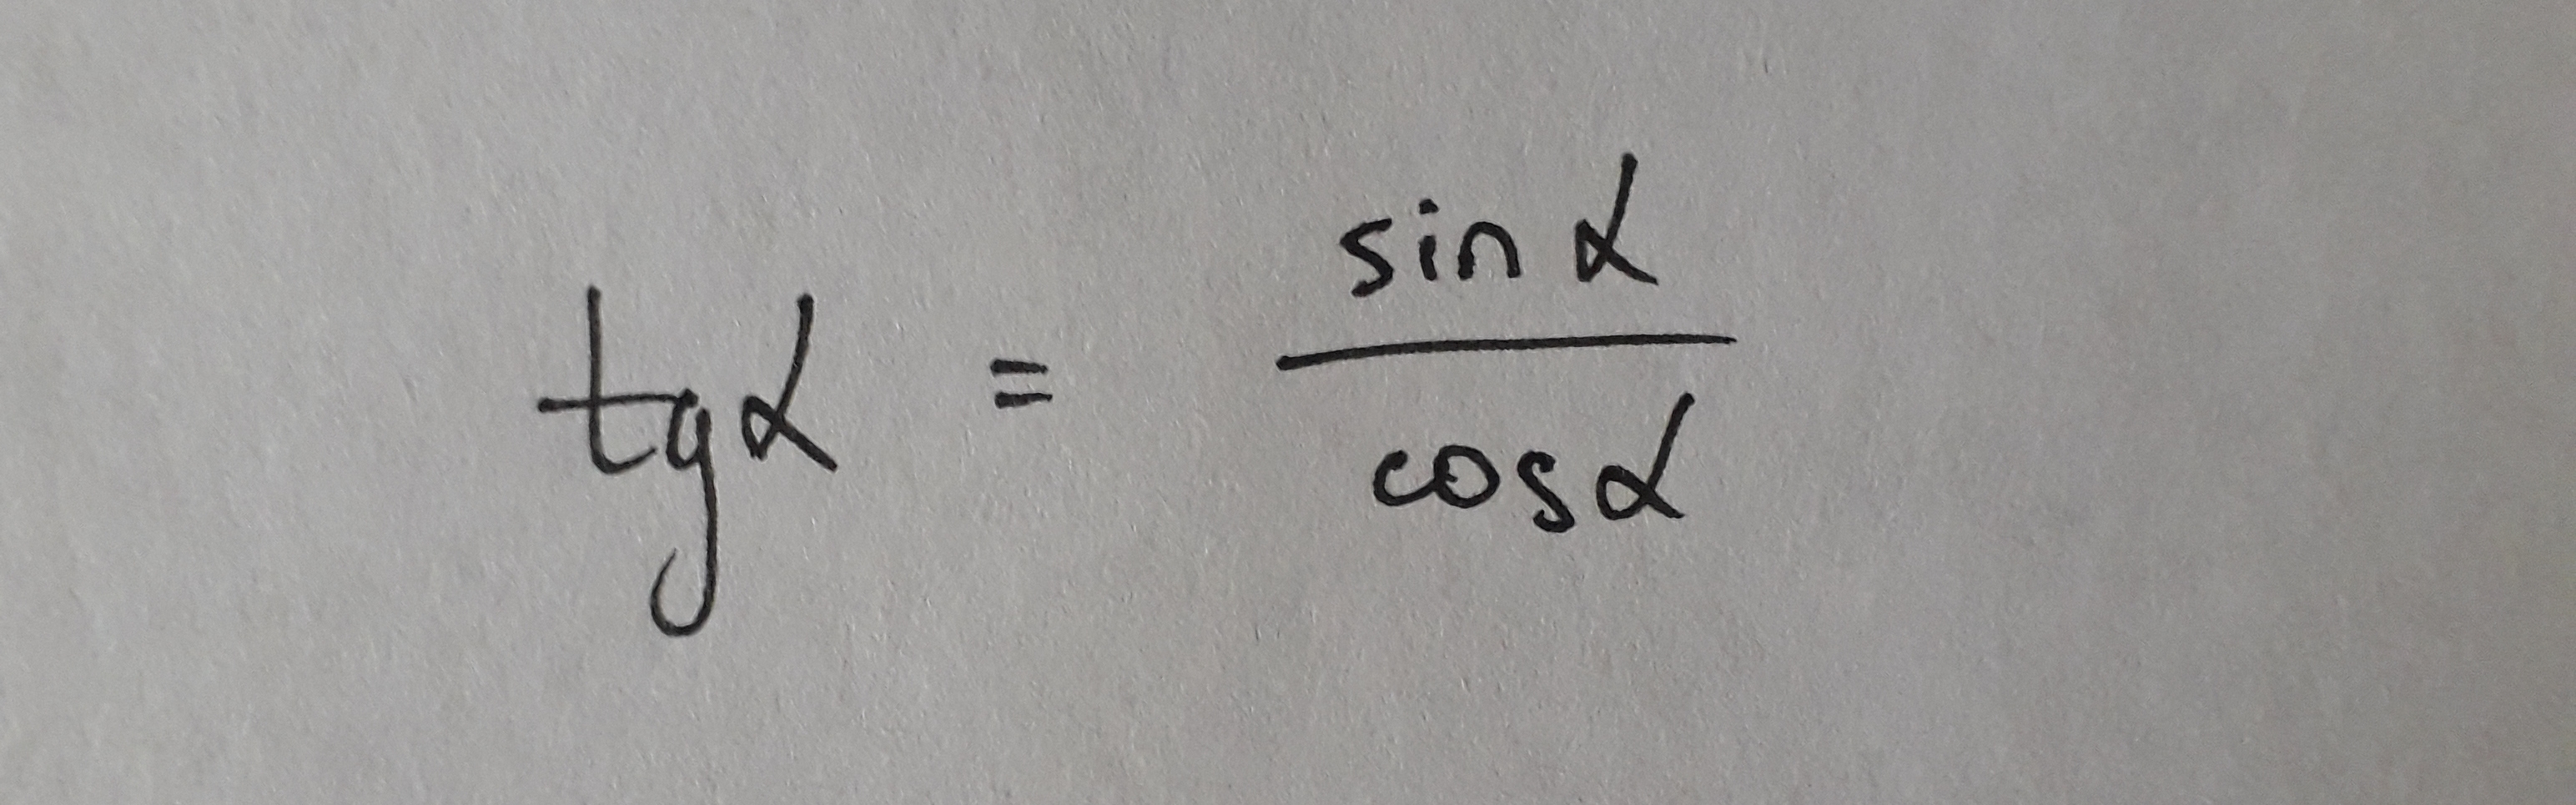 tg α = sin α / cos α